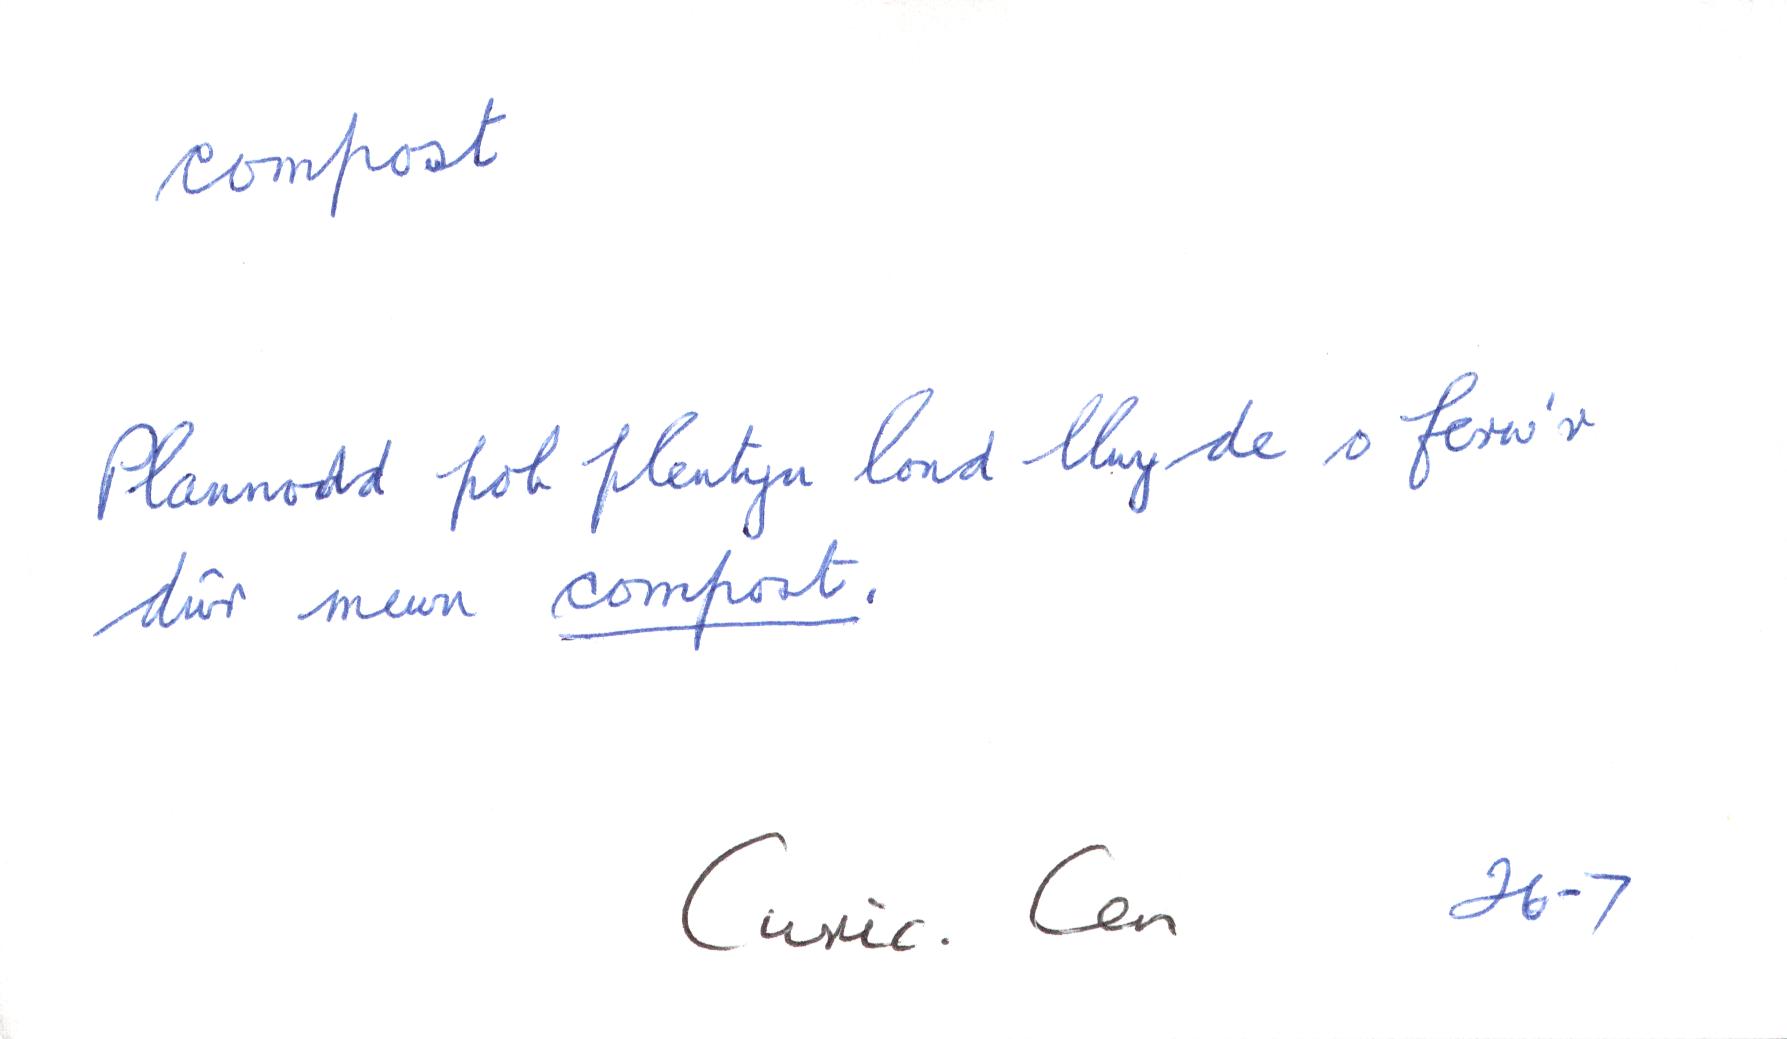 compost
Plannodd pob plentyn lond llwy de o ferw'r
dŵr mewn compost.
Curric. Cen 26-7